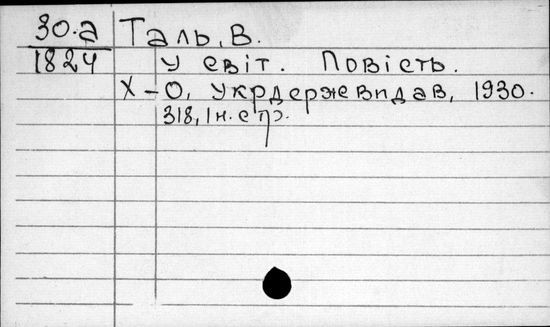 30.а Таль, В.
1824 У світ. Повість.
Х-О, Укрдержевидав, 1930.
318, 1 н. стр.